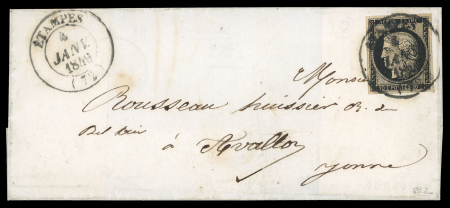 ÉTAMPES
4
JANV.
1849
(72)
Monsieur
Rousseau huissier R. du
Bel air
à Avallon
Yonne